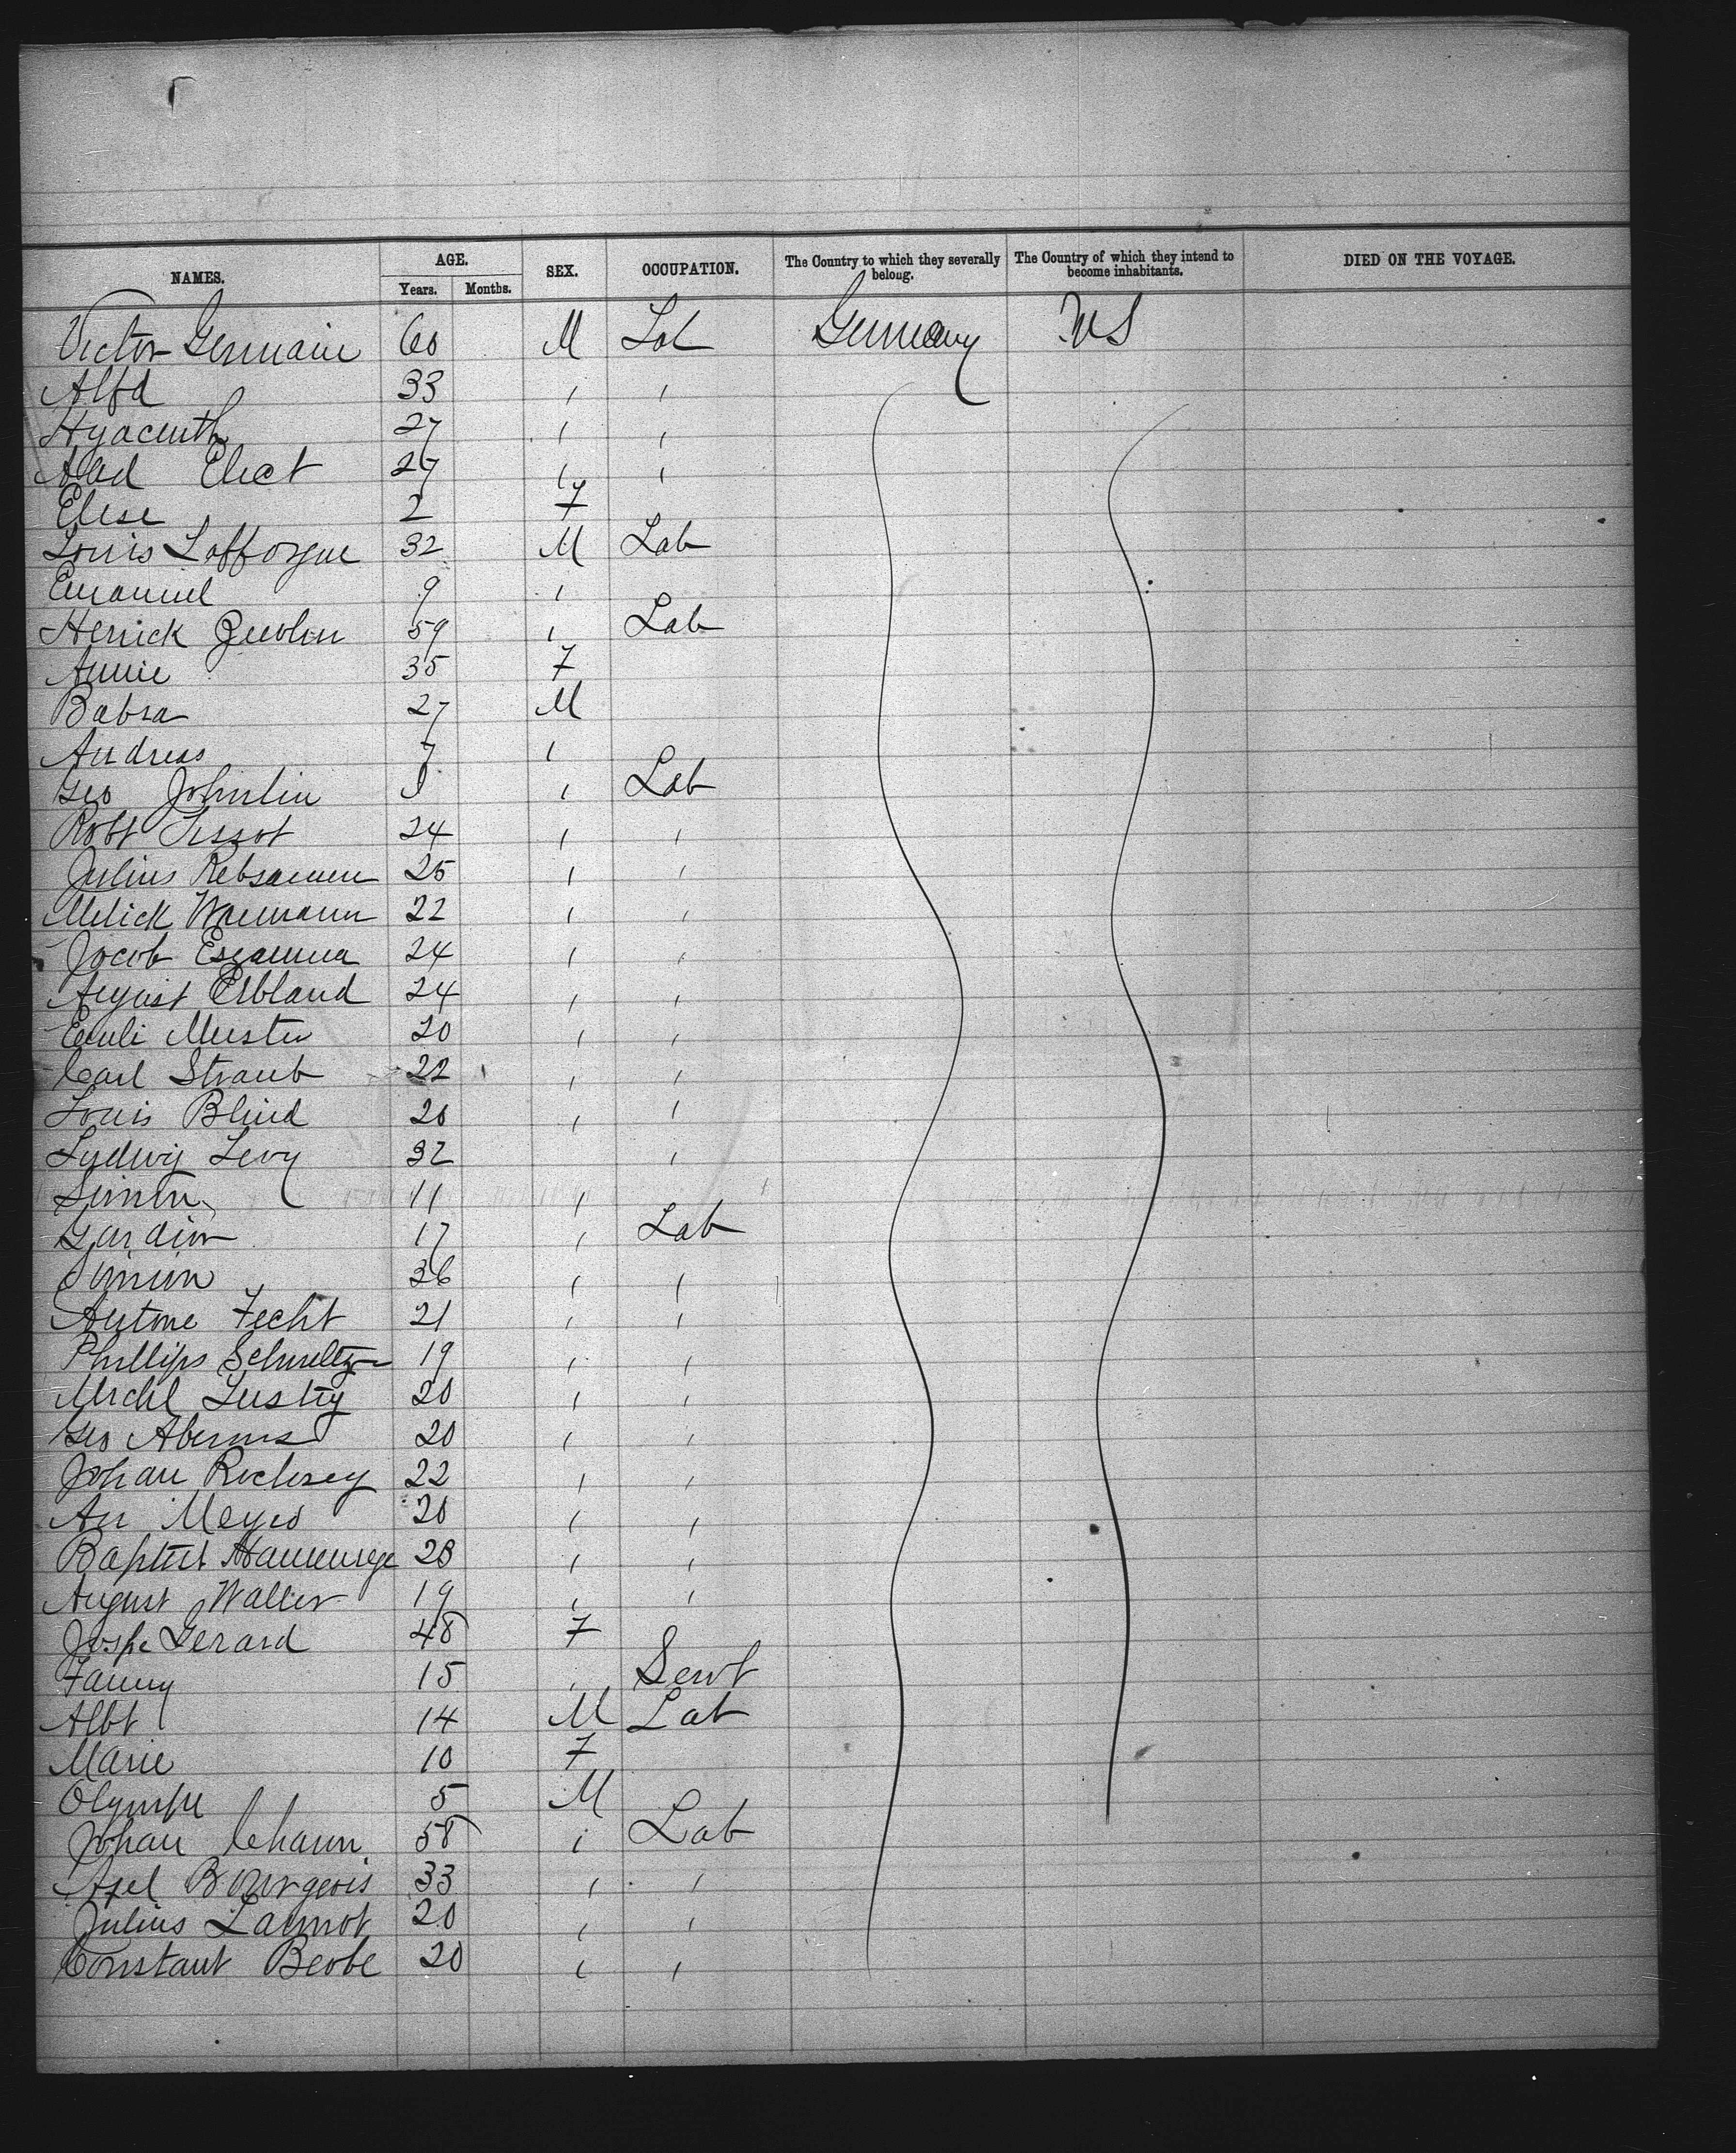 NAMES. AGE. Years. Months. SEX. OCCUPATION. The Country to which they severally belong. The Country of which they intend to become inhabitants. DIED ON THE VOYAGE.
Victor Germain 60 M Lab Germany US
Alfd 33 " "
Hyacinth 27 " "
Elect 27 " "
Elise 2 F
Louis Lafforgue 32 M Lab
Emanuel 9 "
Herrick 59 " Lab
Annie 35 F
Babra 27 M
Andreas 7 "
Geo Johnlin " Lab
Robt Tissot 24 " "
Julius Rebsamen 25 " "
22 " "
Jacob 24 " "
August Erbland 24 " "
Emili Muster 20 " "
Carl Straub 22 " "
Louis Blind 20 " "
Ludwig Levy 32 "
Simon 11 "
17 " Lab
Simon 36 " "
Antone Fecht 21 " "
Phillips Schmeltz 19 " "
Michl Lustig 20 " "
Geo 20 " "
Johan 22 " "
An Meyer 20 " "
Baptist 23 " "
August Walter 19 " "
Josph Gerard 48 F
Fanny 15 " Servt
Albt 14 M Lab
Marie 10 F
Olympe 5 M
Johan 58 " Lab
Bourgeois 33 " "
Julius Lamnot 20 " "
Constant Beobe 20 " "